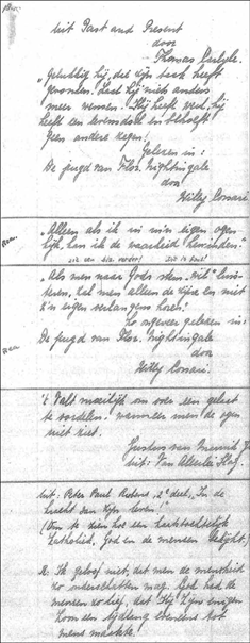 uit Past and Present
door
Thomas Carlyle.
"Gelukkig hij, die zijn taak heeft
gevonden. Laat hij niets anders
meer wensen. Hij heeft werk, hij
heeft een levensdoel en behoeft
geen andere zegen!
Gelezen in:
De jeugd van Flor. Nightingale
door
Willy Corsari
"Alleen als ik in mijn eigen ogen
kijk, kan ik de waarheid
"Als men naar Gods stem wil luis-
teren, zal men alleen de zijne en niet
z'n eigen verlangens horen!
zo ongeveer gelezen in:
De jeugd van Flor. Nightingale
door
Willy Corsari.
't Valt moeilijk om over een gelaat
te oordelen wanneer men de ogen
niet ziet.
uit: Van Allerlei Slag.
uit: Peter Paul Rubens, 2e deel, "In de
lucht van zijn leven!
Om te zien hoe een
katholiek, God en de mensen
2. Ik geloof niet, dat men de mensheid
zo onderschatten mag. God had de
mensen zo lief, dat Hij Zijn enigen
Zoon een
mens maakte.